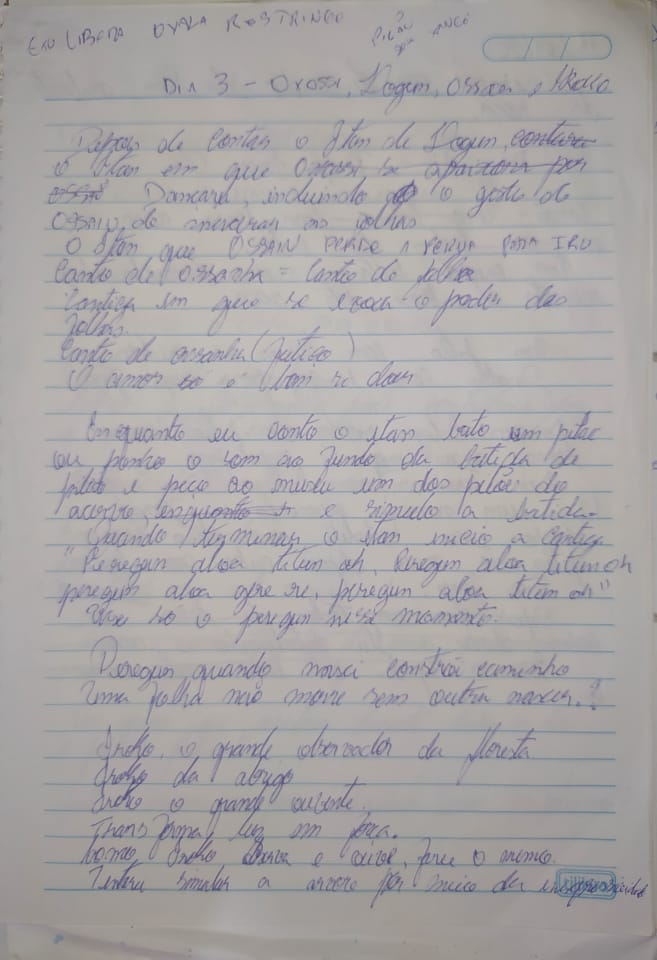 EXU LIBERA
PILÃO
DIA 3 - OXOSSI, Logun, OSSAIN e IROKO
Depois de contar o Itan de Logun, contarei
o itan em que Oxossi se apaixona por
Dançarei, incluindo o gesto de
OSSAIN de macerar as folhas
O Itan que OSSAIN PERDE A PERNA PARA IKU
Canto de OSSANHA = Canto de folha
Cantiga em que se evoca o poder das
folhas.
Canto de ossanha (feitiço)
O amor só é bom se doer
Enquanto eu conto o itan bato um pilão
ou ponho o som ao fundo da batida de
pilão e peço ao museu um dos pilões do
acervo, enquanto e simulo a batida.
Quando terminar o itan inicio a cantiga
"Peregun alaa titun oh, Peregun alaa titun oh
peregun alaa gere re, peregun alaa titun oh"
Use só o peregun nesse momento.
Peregun quando nasci constrói caminho
Uma folha não morre sem outra nascer.
Iroko, o grande observador da floresta.
Iroko da abrigo
Iroko o grande ouvinte.
Transforma luz em força.
Como Iroko observa e ouve, faço o mesmo.
Tentarei simular a árvore por meio da